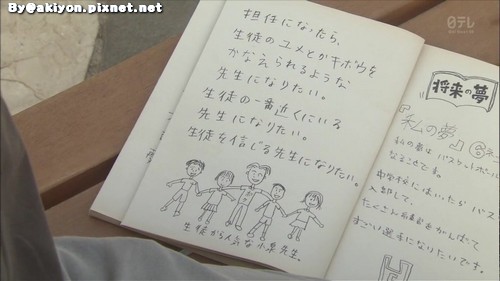 By@akiyon.pixnet.net
日テレ
担任になったら、
生徒のユメとかキボウを
かなえられるような
先生になりたい。
生徒の一番近くにいる
先生になりたい。
生徒を信じる先生になりたい。
生徒から人気な小泉先生。
将来の夢
『私の夢』
私の夢は バスケットボール
なることです。
中学校に行いたら バス
入部して、
がんばって
すごい選手になりたいです。